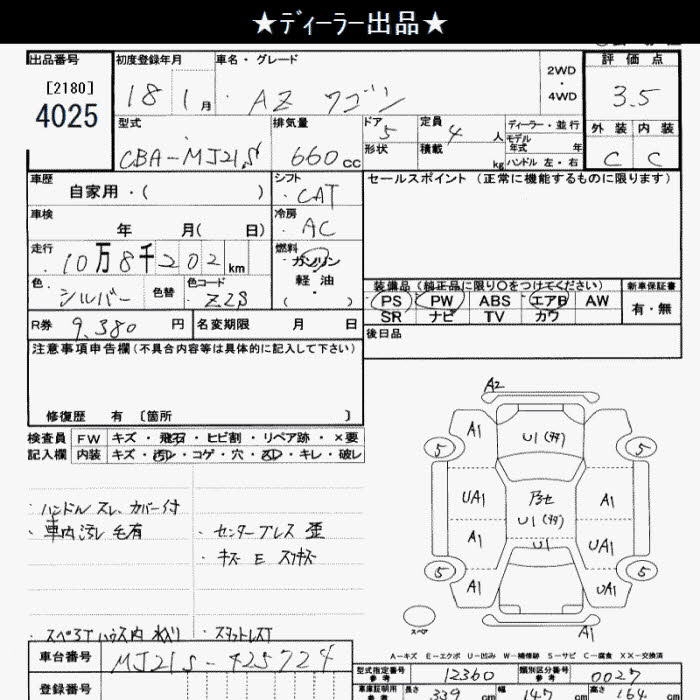 ★ディーラー出品★
出品番号 初度登録年月 車名・グレード 2WD ・ 4WD 評価点
[2180] 4025 18 1月 AZ ワゴン 3.5
型式 排気量 ドア 定員 ディーラー・並行 外装 内装
CBA-MJ21S 660cc 5 4人 モデル年式 年 C C
形状 積載 kg ハンドル 左・右
車歴 シフト セールスポイント (正常に機能するものに限ります)
自家用・( ) CAT
車検 冷房
年 月( 日) AC
走行 燃料
10万8千202km ガソリン
色 色替 色コード 軽油
シルバー Z2S ( ・ )
装備品 (純正品に限り○をつけてください) 新車保証書
PS PW ABS エアB AW 有・無
SR ナビ TV カワ
R券 9,380円 名変期限 月 日 後日品
注意事項申告欄(不具合内容等は具体的に記入して下さい)
修復歴 有 〔箇所 〕
検査員 FW キズ・飛石・ヒビ割・リペア跡・×要
記入欄 内装 キズ・汚れ・コゲ・穴・スレ・キレ・破レ
・ハンドル スレ、カバー付
・車内汚レ 毛有 ・センターTレス 歪
・キズ E スリキズ
・スタットレスT
A2
A1 U1
5 5
UA1 U1 A1
A1 U1 UA1
5 5
A1 UA1
スペア A1
A-キズ E-エクボ U-凹み W-補修跡 S-サビ C-腐食 XX-交換済
車台番号 MJ21S-425724
型式指定番号 参考 12360 類別区分番号 参考 0027
登録番号
車庫証明用 参考 長さ 339cm 幅 147cm 高さ 164cm